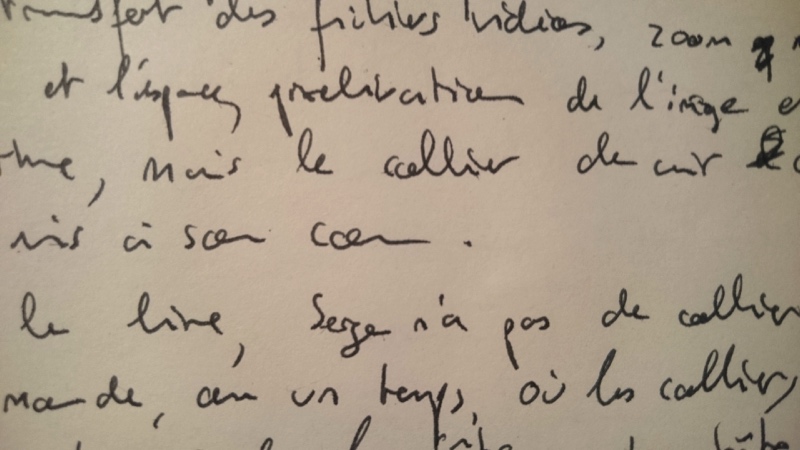 transfert des fichiers vidéos, zoom
et l'espace, pixelisation de l'image
, mais le collier de cuir
mis à son cou.
le livre, Serge n'a pas de collier
mande, à un temps, où les colliers,